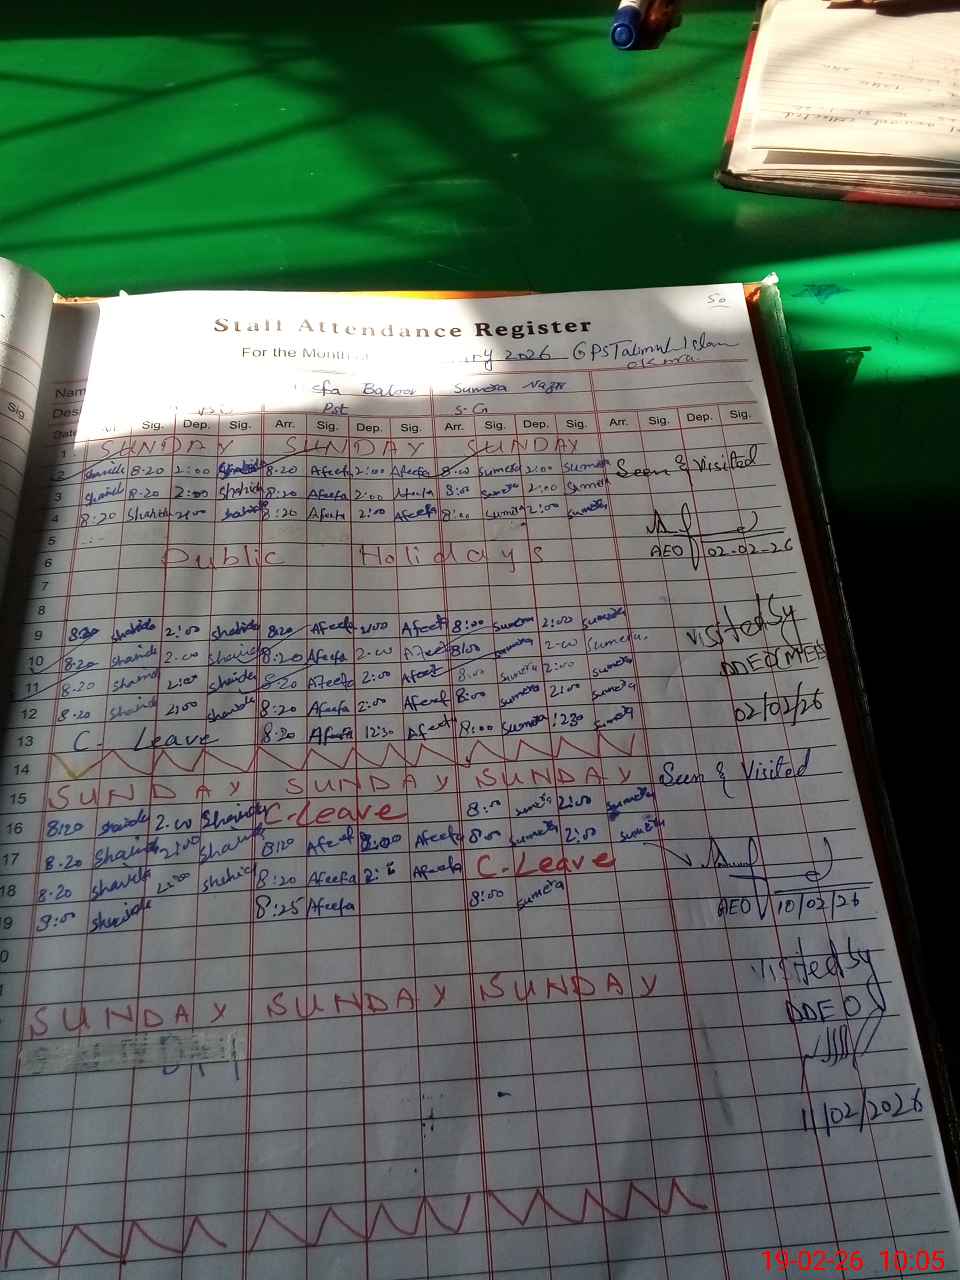 50
Staff Attendance Register
For the Month of ry 2026 GPS Talimul Islam
okara
Nam sfa Baloor Sumera Nazir
Des Pst S.G
Sig
Date Sig. Dep. Sig. Arr. Sig. Dep. Sig. Arr. Sig. Dep. Sig. Arr. Sig. Dep. Sig.
1 SUNDAY SUNDAY SUNDAY
2 Shahida 8.20 2:00 Shahida 8.20 Afeefa 2:00 Afeefa 8:00 Sumera 2:00 Sumera Seen & Visited
3 Shahid 8.20 2:00 Shahida 8:20 Afeefa 2:00 Afeefa 8:00 Sumera 2:00 Sumera
4 8:20 Shahida 2:00 Shahida 8:20 Afeefa 2:00 Afeefa 8:00 Sumera 2:00 Sumera
5
AEO 02-02-26
6 Public Holidays
7
8
9 8:20 Shahida 2:00 Shahida 8:20 Afeefa 2:00 Afeefa 8:00 Sumera 2:00 Sumera
Visited by
10 8.20 Shahida 2.00 Shahida 8.20 Afeefa 2.00 Afeef 8:00 Sumera 2.00 Sumera
DDEO(MEE)
11 8.20 Shahida 2:00 Shahida 8:20 Afeefa 2:00 Afeef 8:00 Sumera 2:00 Sumera
12 8.20 Shahida 2:00 Shahida 8:20 Afeefa 2:00 Afeef 8:00 Sumera 2:00 Sumera
02/02/26
13 C. Leave 8:20 Afeefa 12:30 Afeef 8:00 Sumera 12:30 Sumera
14
15 SUNDAY SUNDAY SUNDAY Seen & Visited
16 8:20 Shahida 2.00 Shahida C-Leave 8:00 Sumera 2:00 Sumera
17 8.20 Shahida 2:00 Shahida 8:20 Afeef 2:00 Afeefa 8:00 Sumera 2:00 Sumera
18 8.20 Shahida 2:00 Shahida 8:20 Afeefa Afeefa C-Leave
19 9:00 Shahida 8:25 Afeefa 8:00 Sumera
AEO 10/02/26
0
Visited by
SUNDAY SUNDAY SUNDAY
DDEO
11/02/2026
19-02-26 10:05